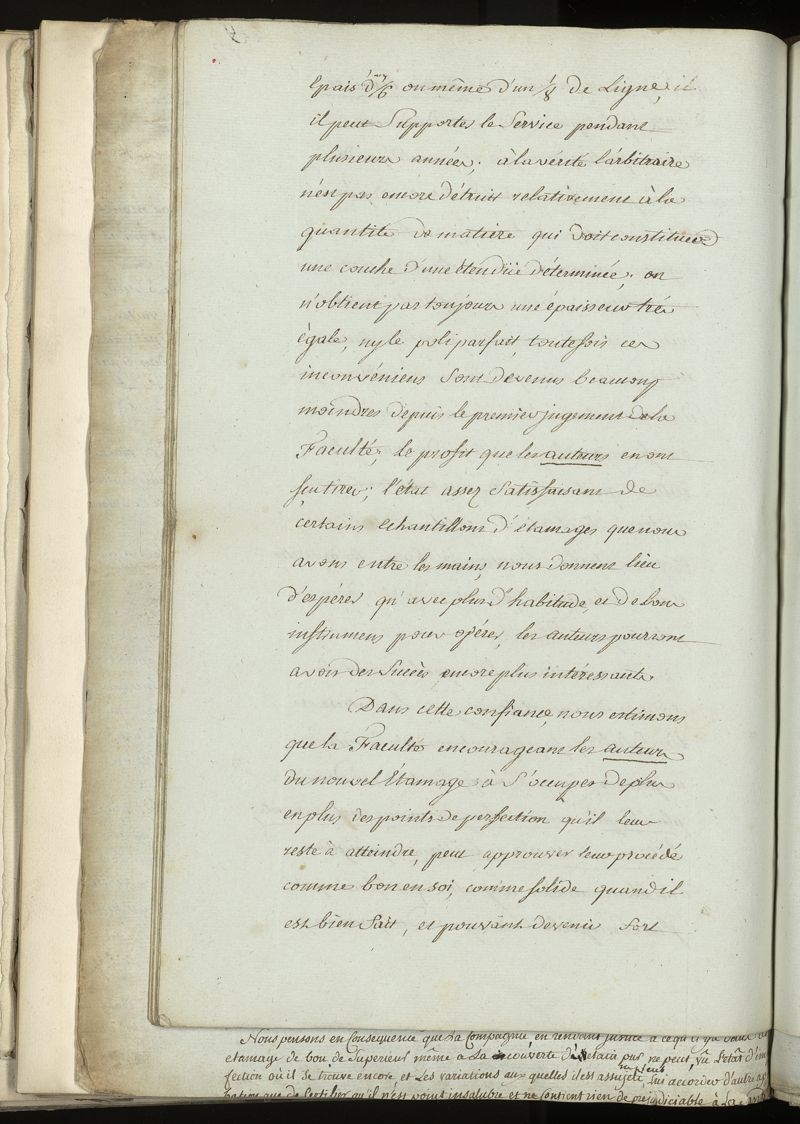 Epais d'1/6 ou même d'un 1/8 de Ligne, il
il peut Supporter le Service pendant
plusieurs années; à la vérité l'arbitraire
n'est pas encore détruit relativement à la
quantité de matiere qui doit constituer
une couche d'une étendüe déterminée; on
n'obtient pas toujours une épaisseur très
égale, ny le poli parfait, toutefois ces
inconvéniens Sont devenus beaucoup
moindres depuis le premier jugement de la
Faculté; le profit que les auteurs en ont
sçu tirer; l'état assez Satisfaisant de
certains échantillons d'étamages que nous
avons entre les mains, nous donnent lieu
d'espérer qu'avec plus d'habitude, et de bons
instrumens pour opérer, les auteurs pourront
avoir des Succès encore plus intéressants
Dans cette confiance, nous estimons
que la Faculté encourageant les auteurs
du nouvel Etamage à S'occuper de plus
en plus des points de perfection qu'il leur
reste à atteindre, peut approuver leur procédé
comme bon en soi, comme solide quand il
est bien fait, et pouvant devenir fort
Nous pensons en Consequence que La Compagnie, en rendant justice a ce qu'il y a dans cet
etamage de bon de Superieur même a La découverte ne peut, vû L'etat d'im
fection où il se trouve encore, et Les variations aux quelles il est assujeti, Lui accorder d'autre ap
bation que de Certifier qu'il n'est point insalubre et ne Contient rien de prejudiciable à La Santé